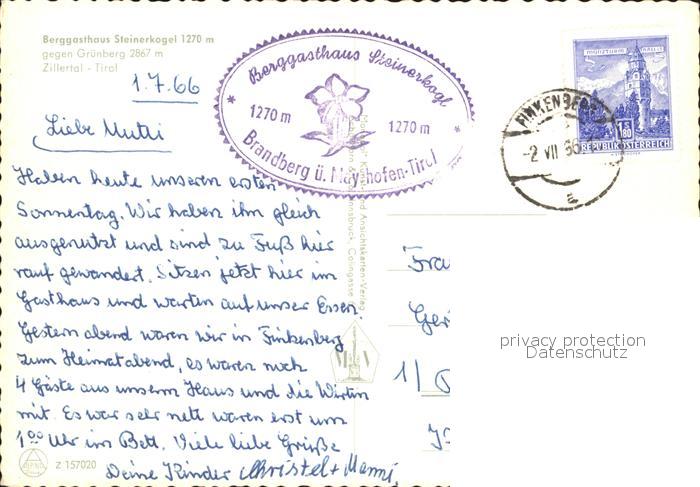 Berggasthaus Steinerkogel 1270 m
gegen Grünberg 2867 m
Zillertal - Tirol
1.7.66
Liebe Mutti
Haben heute unseren ersten
Sonnentag. Wir haben ihn gleich
ausgenutzt und sind zu Fuß hier
rauf gewandert. Sitzen jetzt hier im
Gasthaus und warten auf unser Essen.
Gestern abend waren wir in Finkenberg
zum Heimatabend, es waren noch
4 Gäste aus unserm Haus und die Wirtin
mit. Es war sehr nett waren erst um
1⁰⁰ Uhr im Bett. Viele liebe Grüße
Deine Kinder Christel + Manni
Z 157020
Berggasthaus Steinerkogl
1270 m 1270 m
Brandberg ü. Mayrhofen-Tirol
und Ansichtskarten-Verlag
Innsbruck,
MÜNZTURM HALL I. T.
1 S 80
REPUBLIK ÖSTERREICH
FINKENBERG
-2 VII 66
a
Fra
1/
privacy protection
Datenschutz